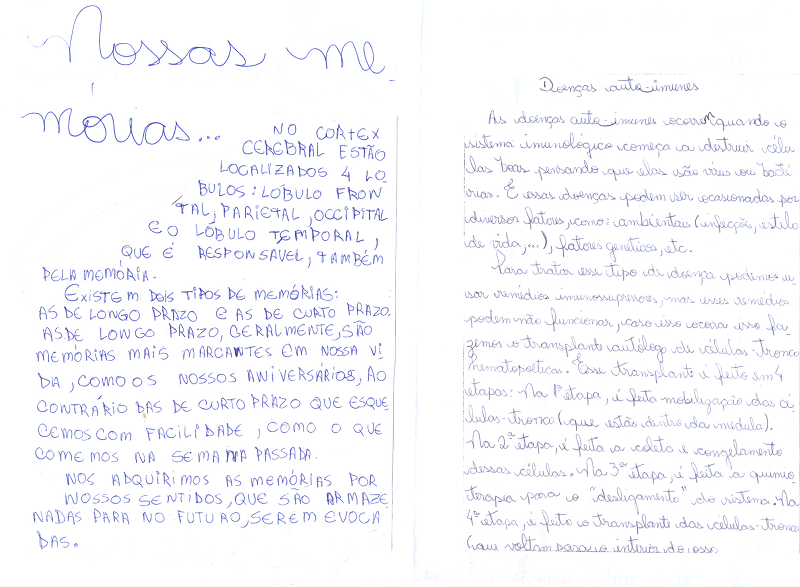 Nossas me-
mórias...
NO CORTEX
CEREBRAL ESTÃO
LOCALIZADOS 4 LO
BULOS: LÓBULO FRON
TAL, PARIETAL, OCCIPITAL
E O LÓBULO TEMPORAL,
QUE É RESPONSAVEL, TAMBÉM
PELA MEMÓRIA.
EXISTEM DOIS TIPOS DE MEMÓRIAS:
AS DE LONGO PRAZO E AS DE CURTO PRAZO.
AS DE LONGO PRAZO, GERALMENTE, SÃO
MEMÓRIAS MAIS MARCANTES EM NOSSA VI
DIA, COMO OS NOSSOS ANIVERSARIOS, AO
CONTRÁRIO DAS DE CURTO PRAZO QUE ESQUE
CEMOS COM FACILIDADE, COMO O QUE
COMEMOS NA SEMANA PASSADA.
NOS ADQUIRIMOS AS MEMÓRIAS POR
NOSSOS SENTIDOS, QUE SÃO ARMAZE
NADAS PARA NO FUTURO, SEREM EVOCA
DAS.
Doenças auto-imunes
As doenças auto-imunes ocorrem quando o
sistema imunológico começa a destruir célu
las boas pensando que elas são vírus ou bacté
rias. E essas doenças podem ser ocasionadas por
diversos fatores, como: ambientais (infecção, estilo
de vida,...), fatores genéticos, etc.
Para tratar esse tipo de doença podemos u-
sar remédios imunossupresores, mas esses remédios
podem não funcionar, caso isso ocorra isso fa-
zemos o transplante autólogo de células-tronco
hematopoéticas. Esse transplante é feito em 4
etapas: Na 1ª etapa, é feita mobilização das cé
lulas-tronco (que estão dentro da medula).
Na 2ª etapa, é feita a coleta e congelamento
dessas células. Na 3ª etapa, é feita a quimio
terapia para o "desligamento" do sistema. Na
4ª etapa, é feito o transplante das células-tronco
(que voltam para o interior do osso